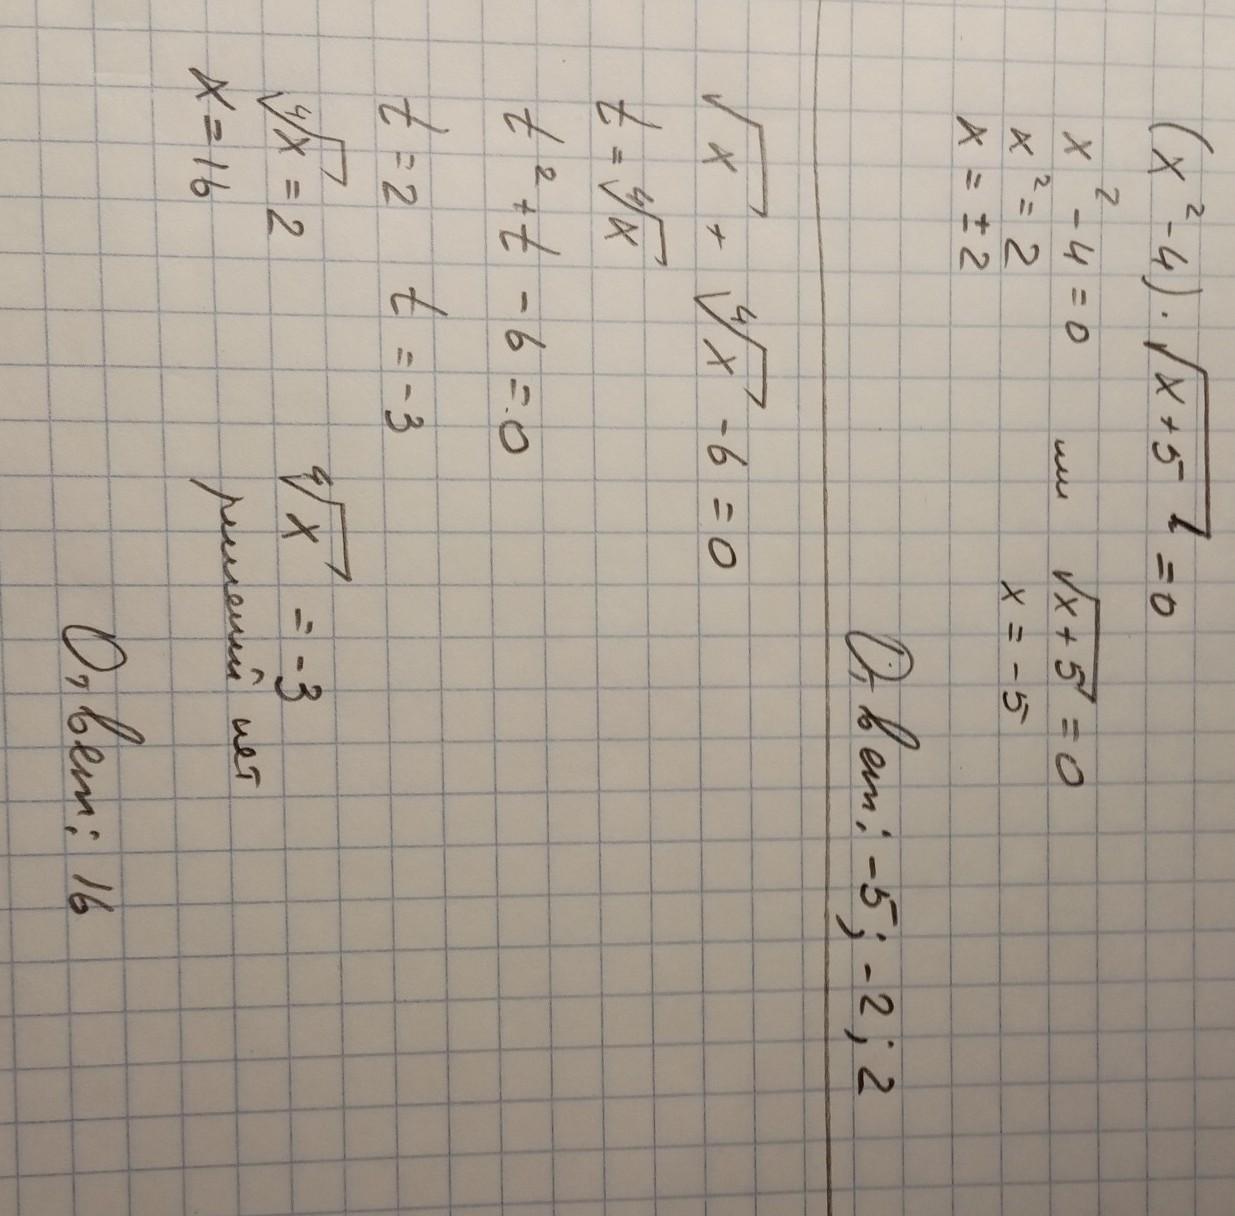 (x² - 4) · √(x + 5) = 0
x² - 4 = 0 или √(x + 5) = 0
x² = 2 x = -5
x = ± 2
Ответ: -5; -2; 2
√x + ∜x - 6 = 0
t = ∜x
t² + t - 6 = 0
t = 2 t = -3
∜x = 2 ∜x = -3
x = 16 решений нет
Ответ: 16